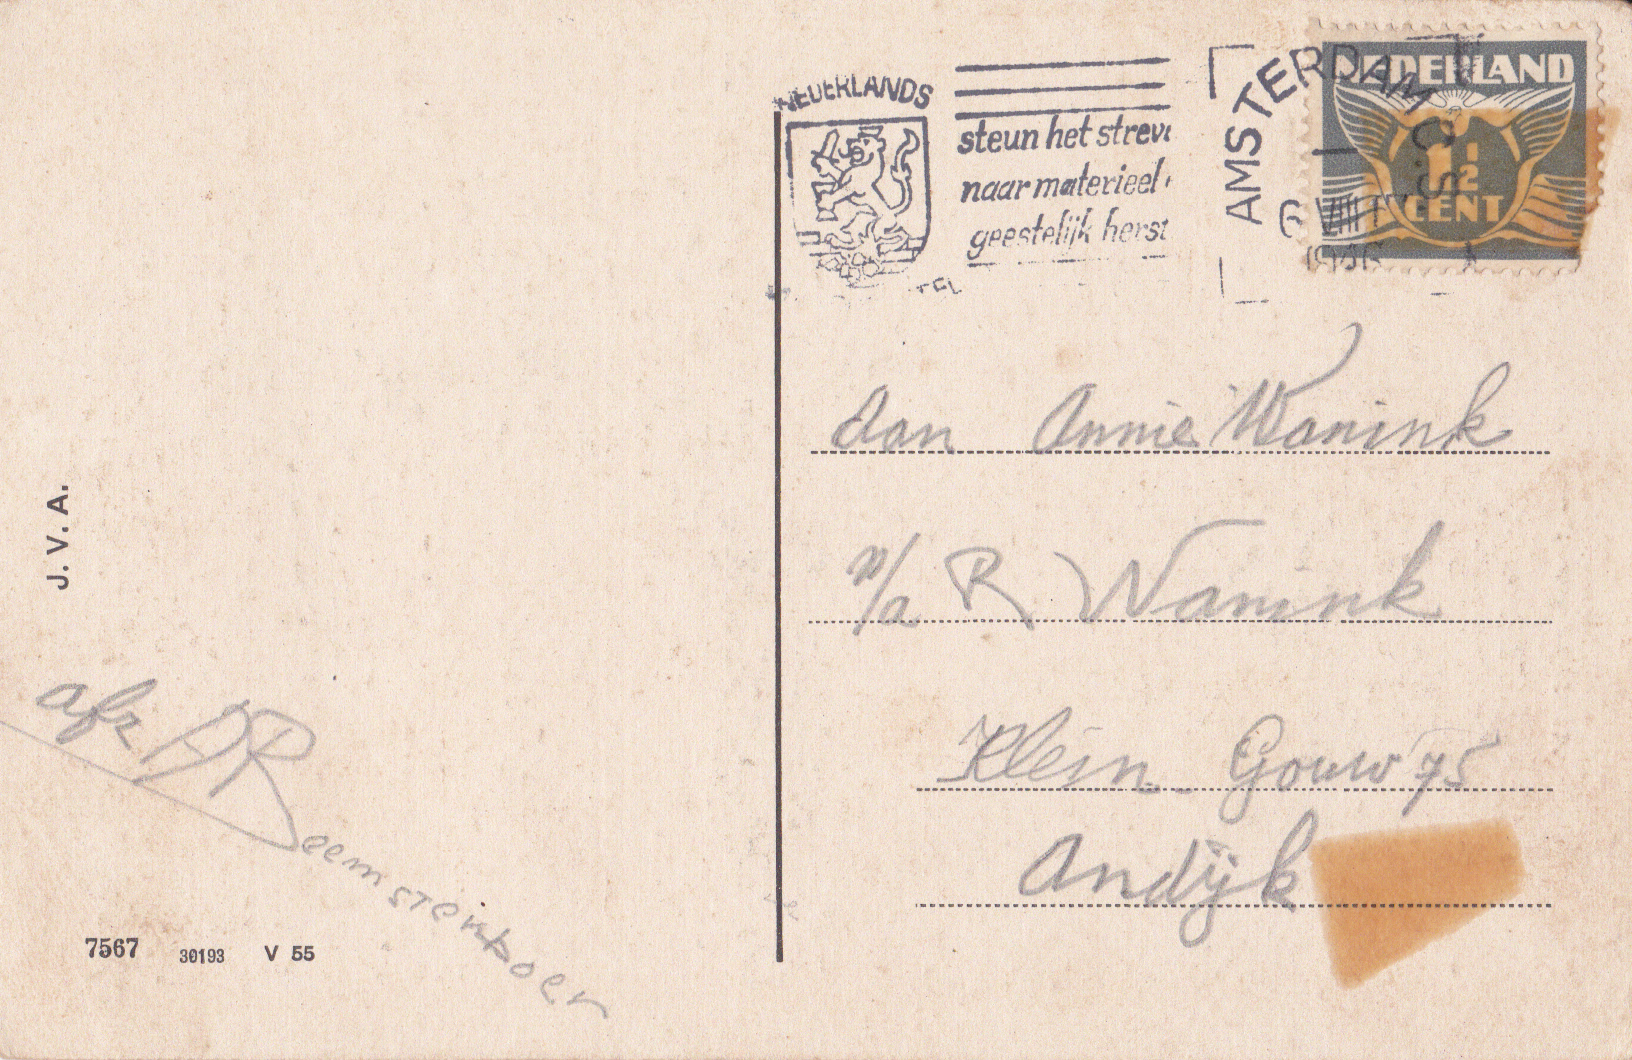 NEDERLANDS
steun het streve
naar materieel
geestelijk herst
AMSTERDAM C.S.
6 VIII
1946
NEDERLAND
1½
CENT
aan Annie Wanink
p/a R Wanink
Klein-Gouw 75
Andijk
J. V. A.
afz
7567 30193 V 55